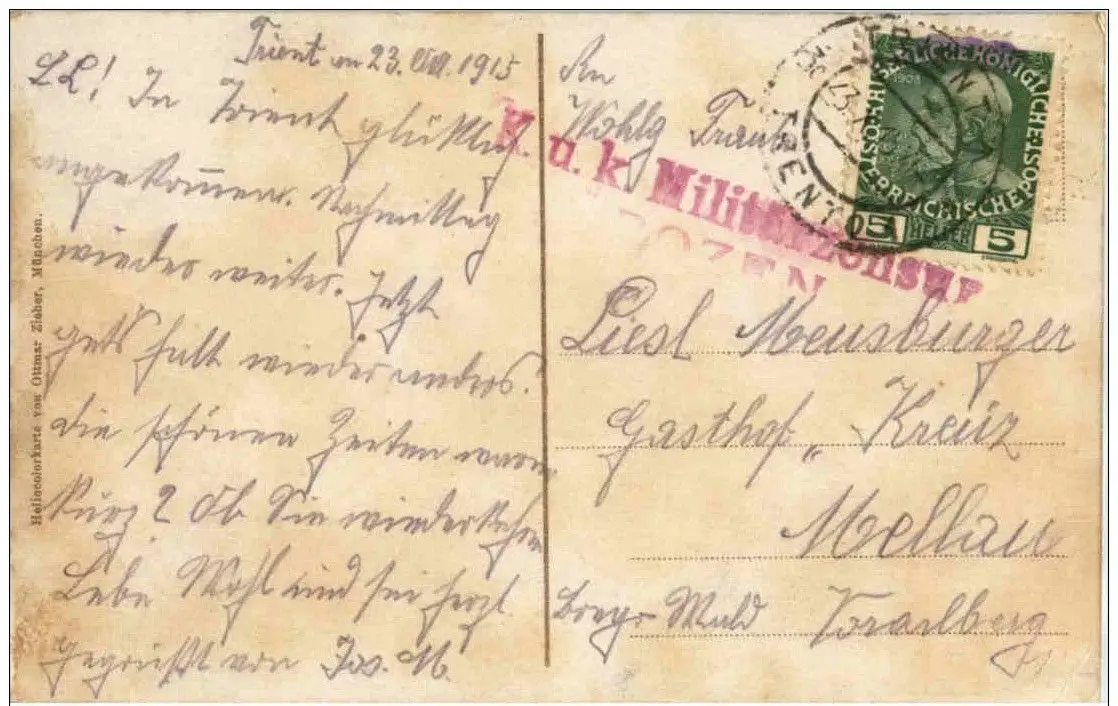 Trient am 23. VIII. 1915
LL! In Trient glücklich
angekommen. Nachmittag
wieder weiter. Jetzt
gets halt wieder anders.
Die schönen Zeiten waren
kurz? Ob Sie wiederkehren
Lebe Wohl und sei herzl.
gegrüßt von Jos. M.
Heliocolorkarte von Ottmar Zieher, München.
An
Wohlg
K. u. k. Militärzensur
BOZEN
Liesl Meusburger
Gasthof „Kreuz
Mellau
Breg. Wald Vorarlberg
TRENTO
TRENTO
KAISERLICHE KÖNIGLICHE ÖSTERREICHISCHE POST
1908
5 HELLER 5